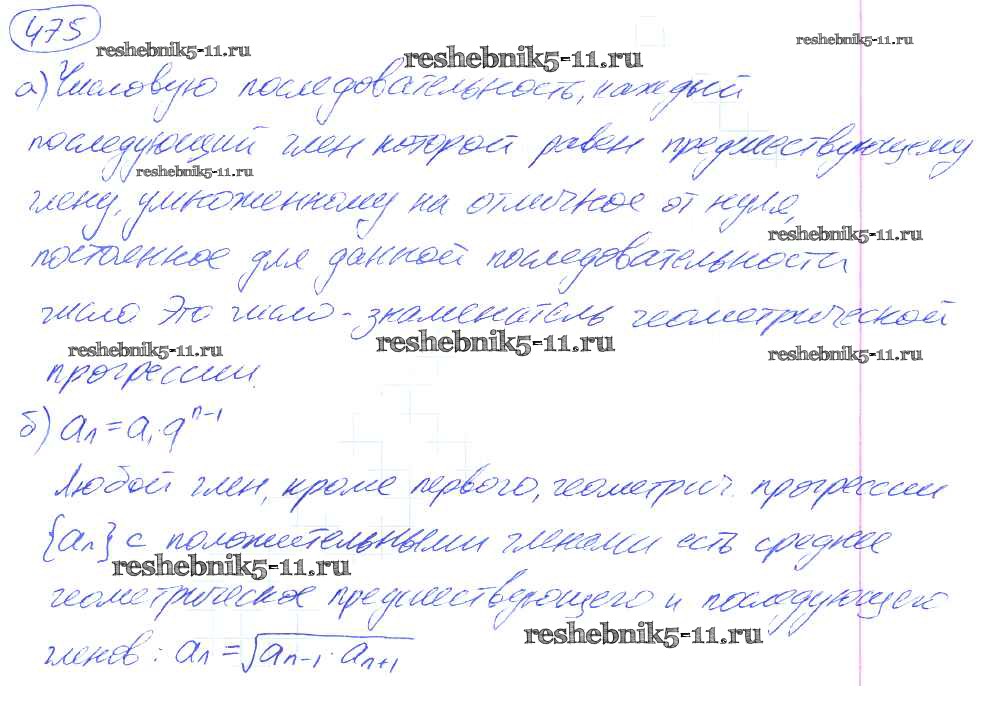 475
reshebnik5-11.ru
reshebnik5-11.ru
reshebnik5-11.ru
а) Числовую последовательность, каждый
последующий член которой равен предшествующему
reshebnik5-11.ru
члену, умноженному на отличное от нуля,
reshebnik5-11.ru
постоенное для данной последовательности
числа Это число - знаменатель геометрической
reshebnik5-11.ru
reshebnik5-11.ru
reshebnik5-11.ru
прогрессии.
б) aₙ = a₁·qⁿ⁻¹
Любой член, кроме первого, геометрич. прогрессии
{aₙ} с положительными членами есть среднее
reshebnik5-11.ru
геометрическое предшествующего и последующего
reshebnik5-11.ru
членов: aₙ = √(aₙ₋₁ · aₙ₊₁)